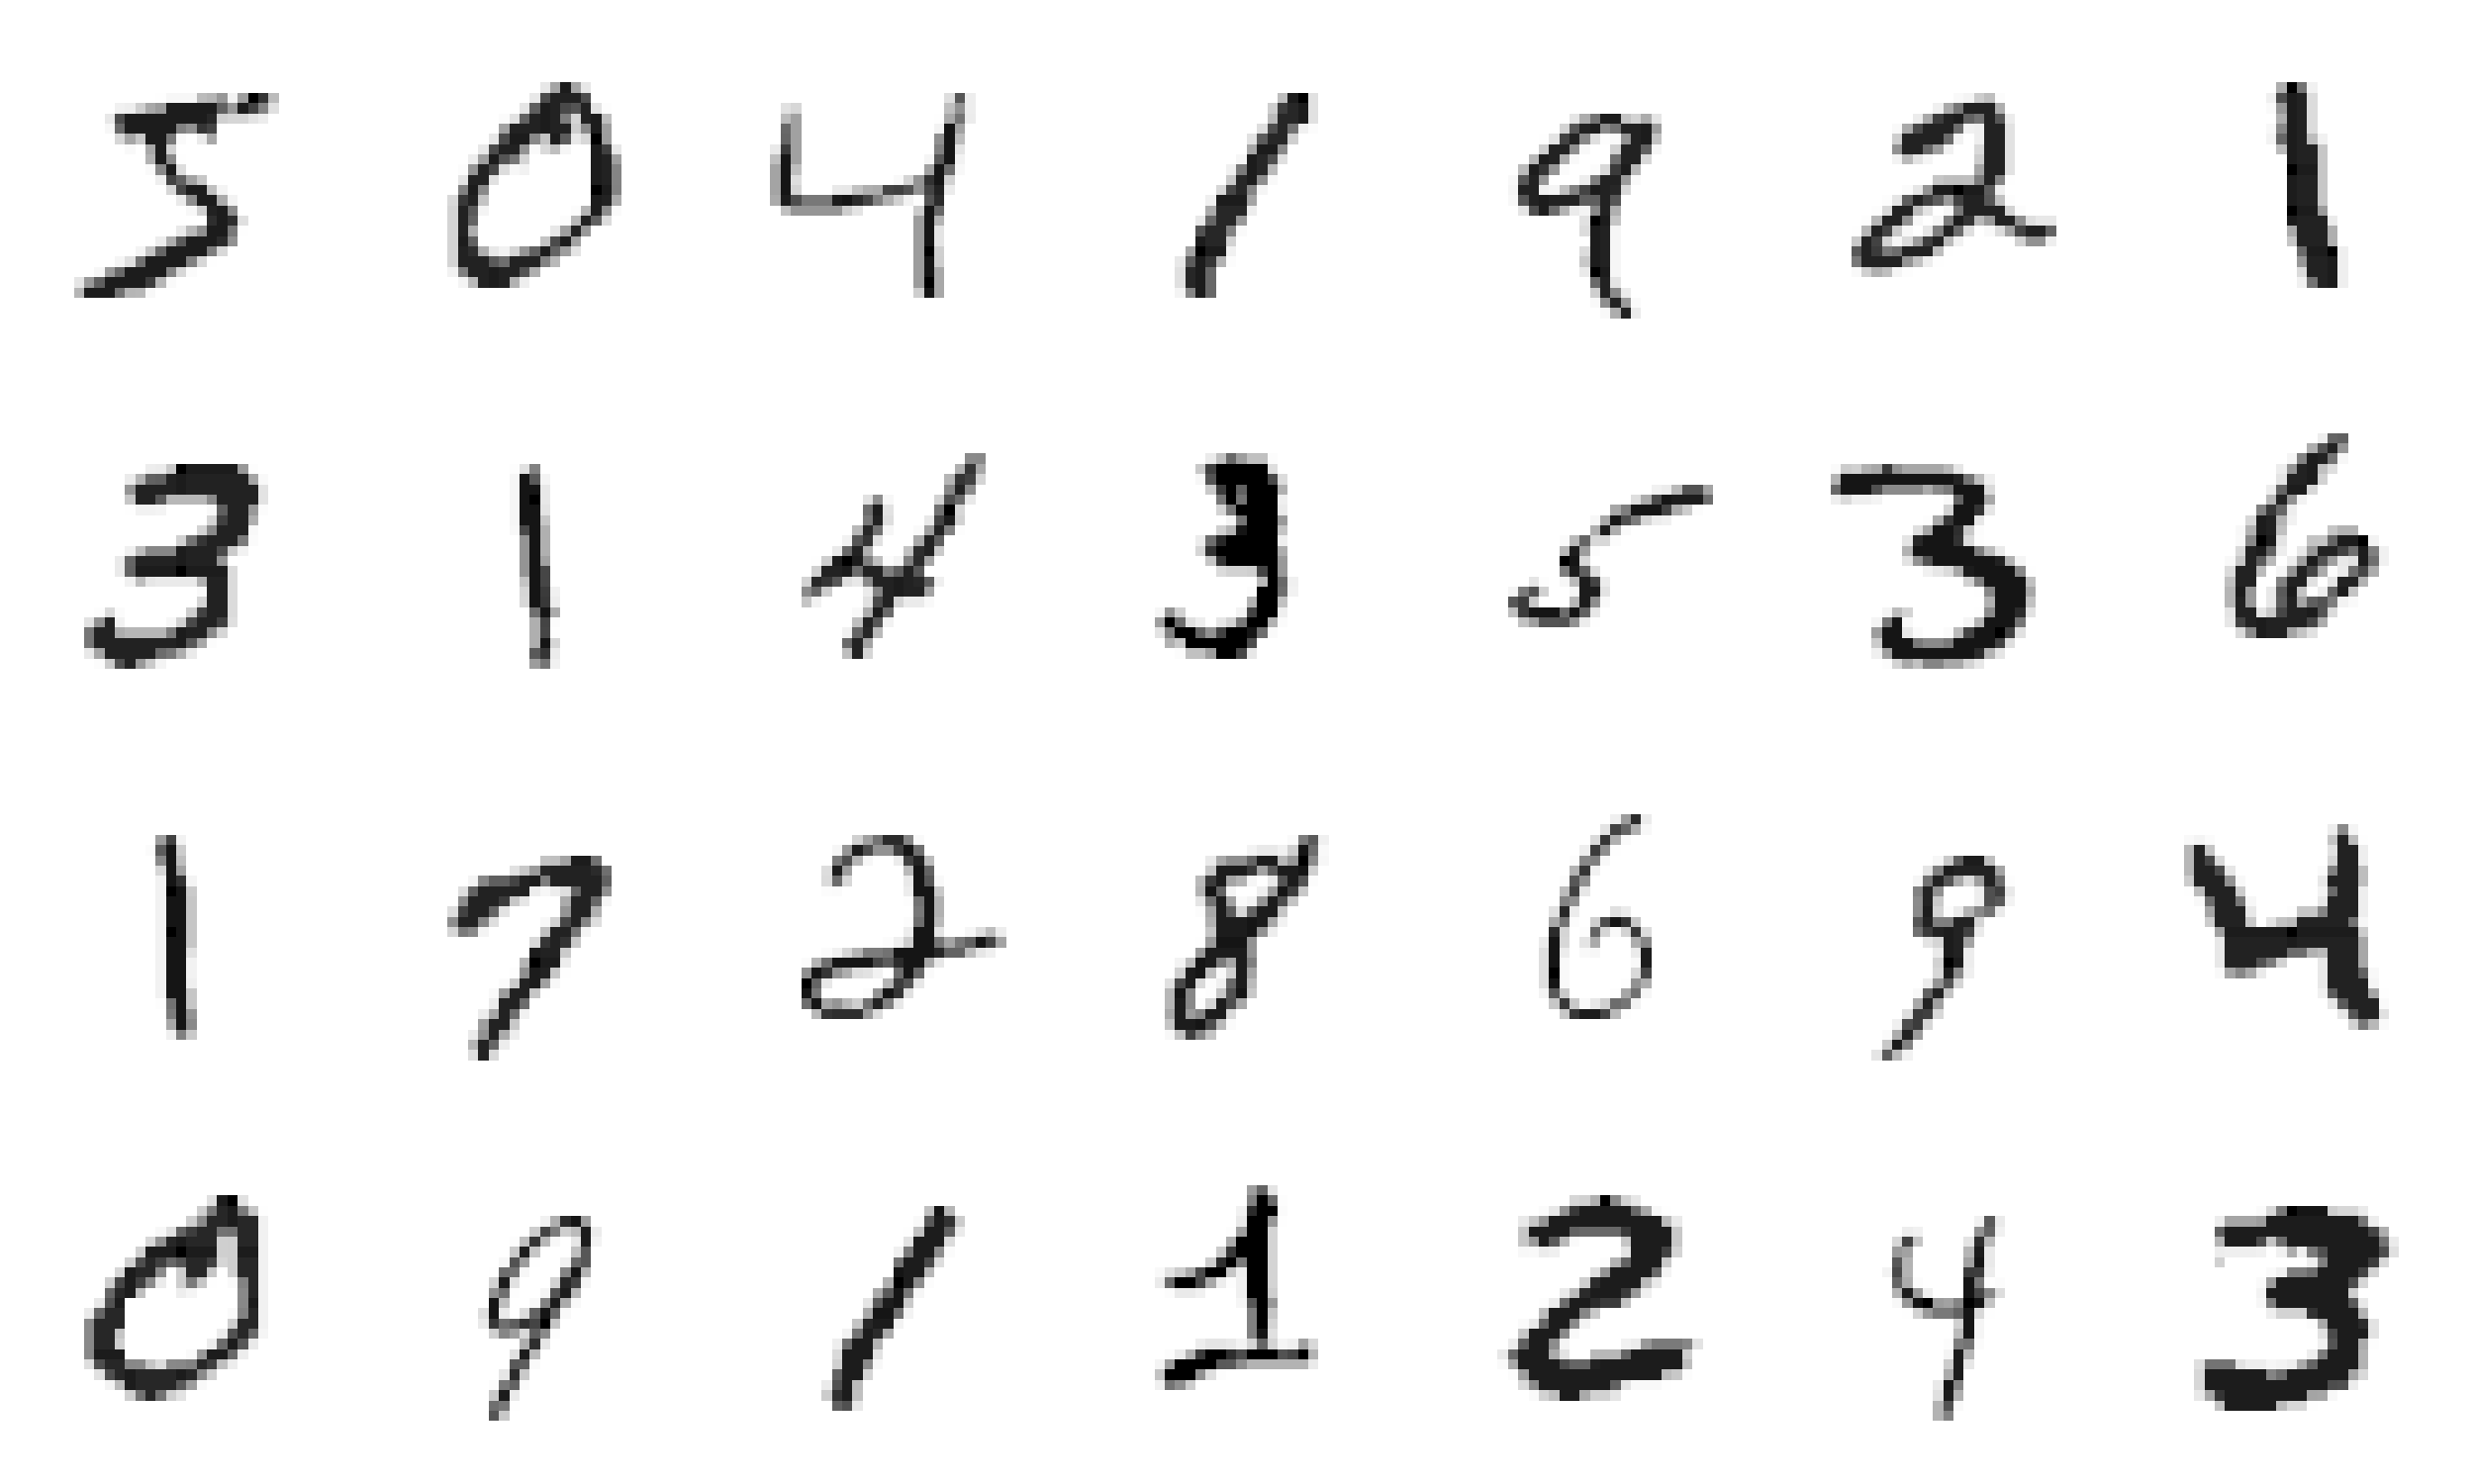 5 0 4 1 9 2 1
3 1 4 3 5 3 6
1 7 2 8 6 9 4
0 9 1 1 2 4 3